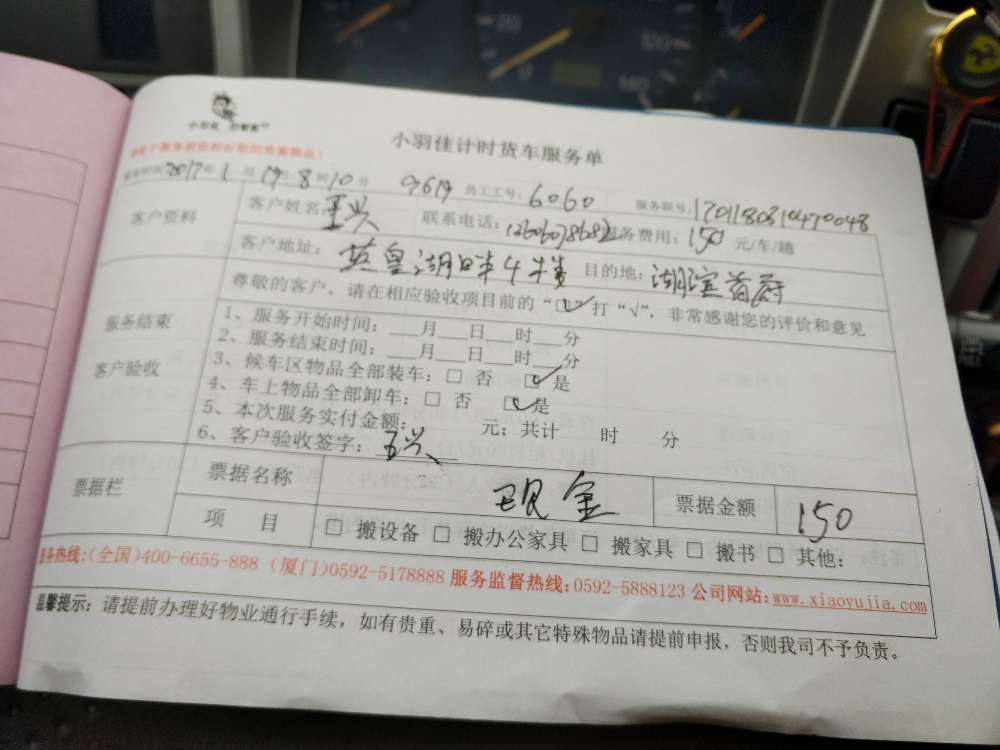 小羽佳计时货车服务单
2017年1月19日8时10分 9619 员工工号：6060 服务联号：1701180810470048
客户资料 客户姓名：王兴 联系电话： 服务费用：150 元/车/趟
客户地址：英皇湖畔4楼 目的地：湖滨首府
尊敬的客户，请在相应验收项目前的“□”打“√”，非常感谢您的评价和意见
服务结束
客户验收
1、服务开始时间：___月___日___时___分
2、服务结束时间：___月___日___时___分
3、候车区物品全部装车：□ 否 □ 是
4、车上物品全部卸车：□ 否 □ 是
5、本次服务实付金额： 元；共计 时 分
6、客户验收签字：王兴
票据栏 票据名称 现金 票据金额 150
项 目 □ 搬设备 □ 搬办公家具 □ 搬家具 □ 搬书 □ 其他：
服务热线：(全国)400-6655-888 (厦门)0592-5178888 服务监督热线：0592-5888123 公司网站：www.xiaoyujia.com
温馨提示：请提前办理好物业通行手续，如有贵重、易碎或其它特殊物品请提前申报，否则我司不予负责。
20
0
120
140